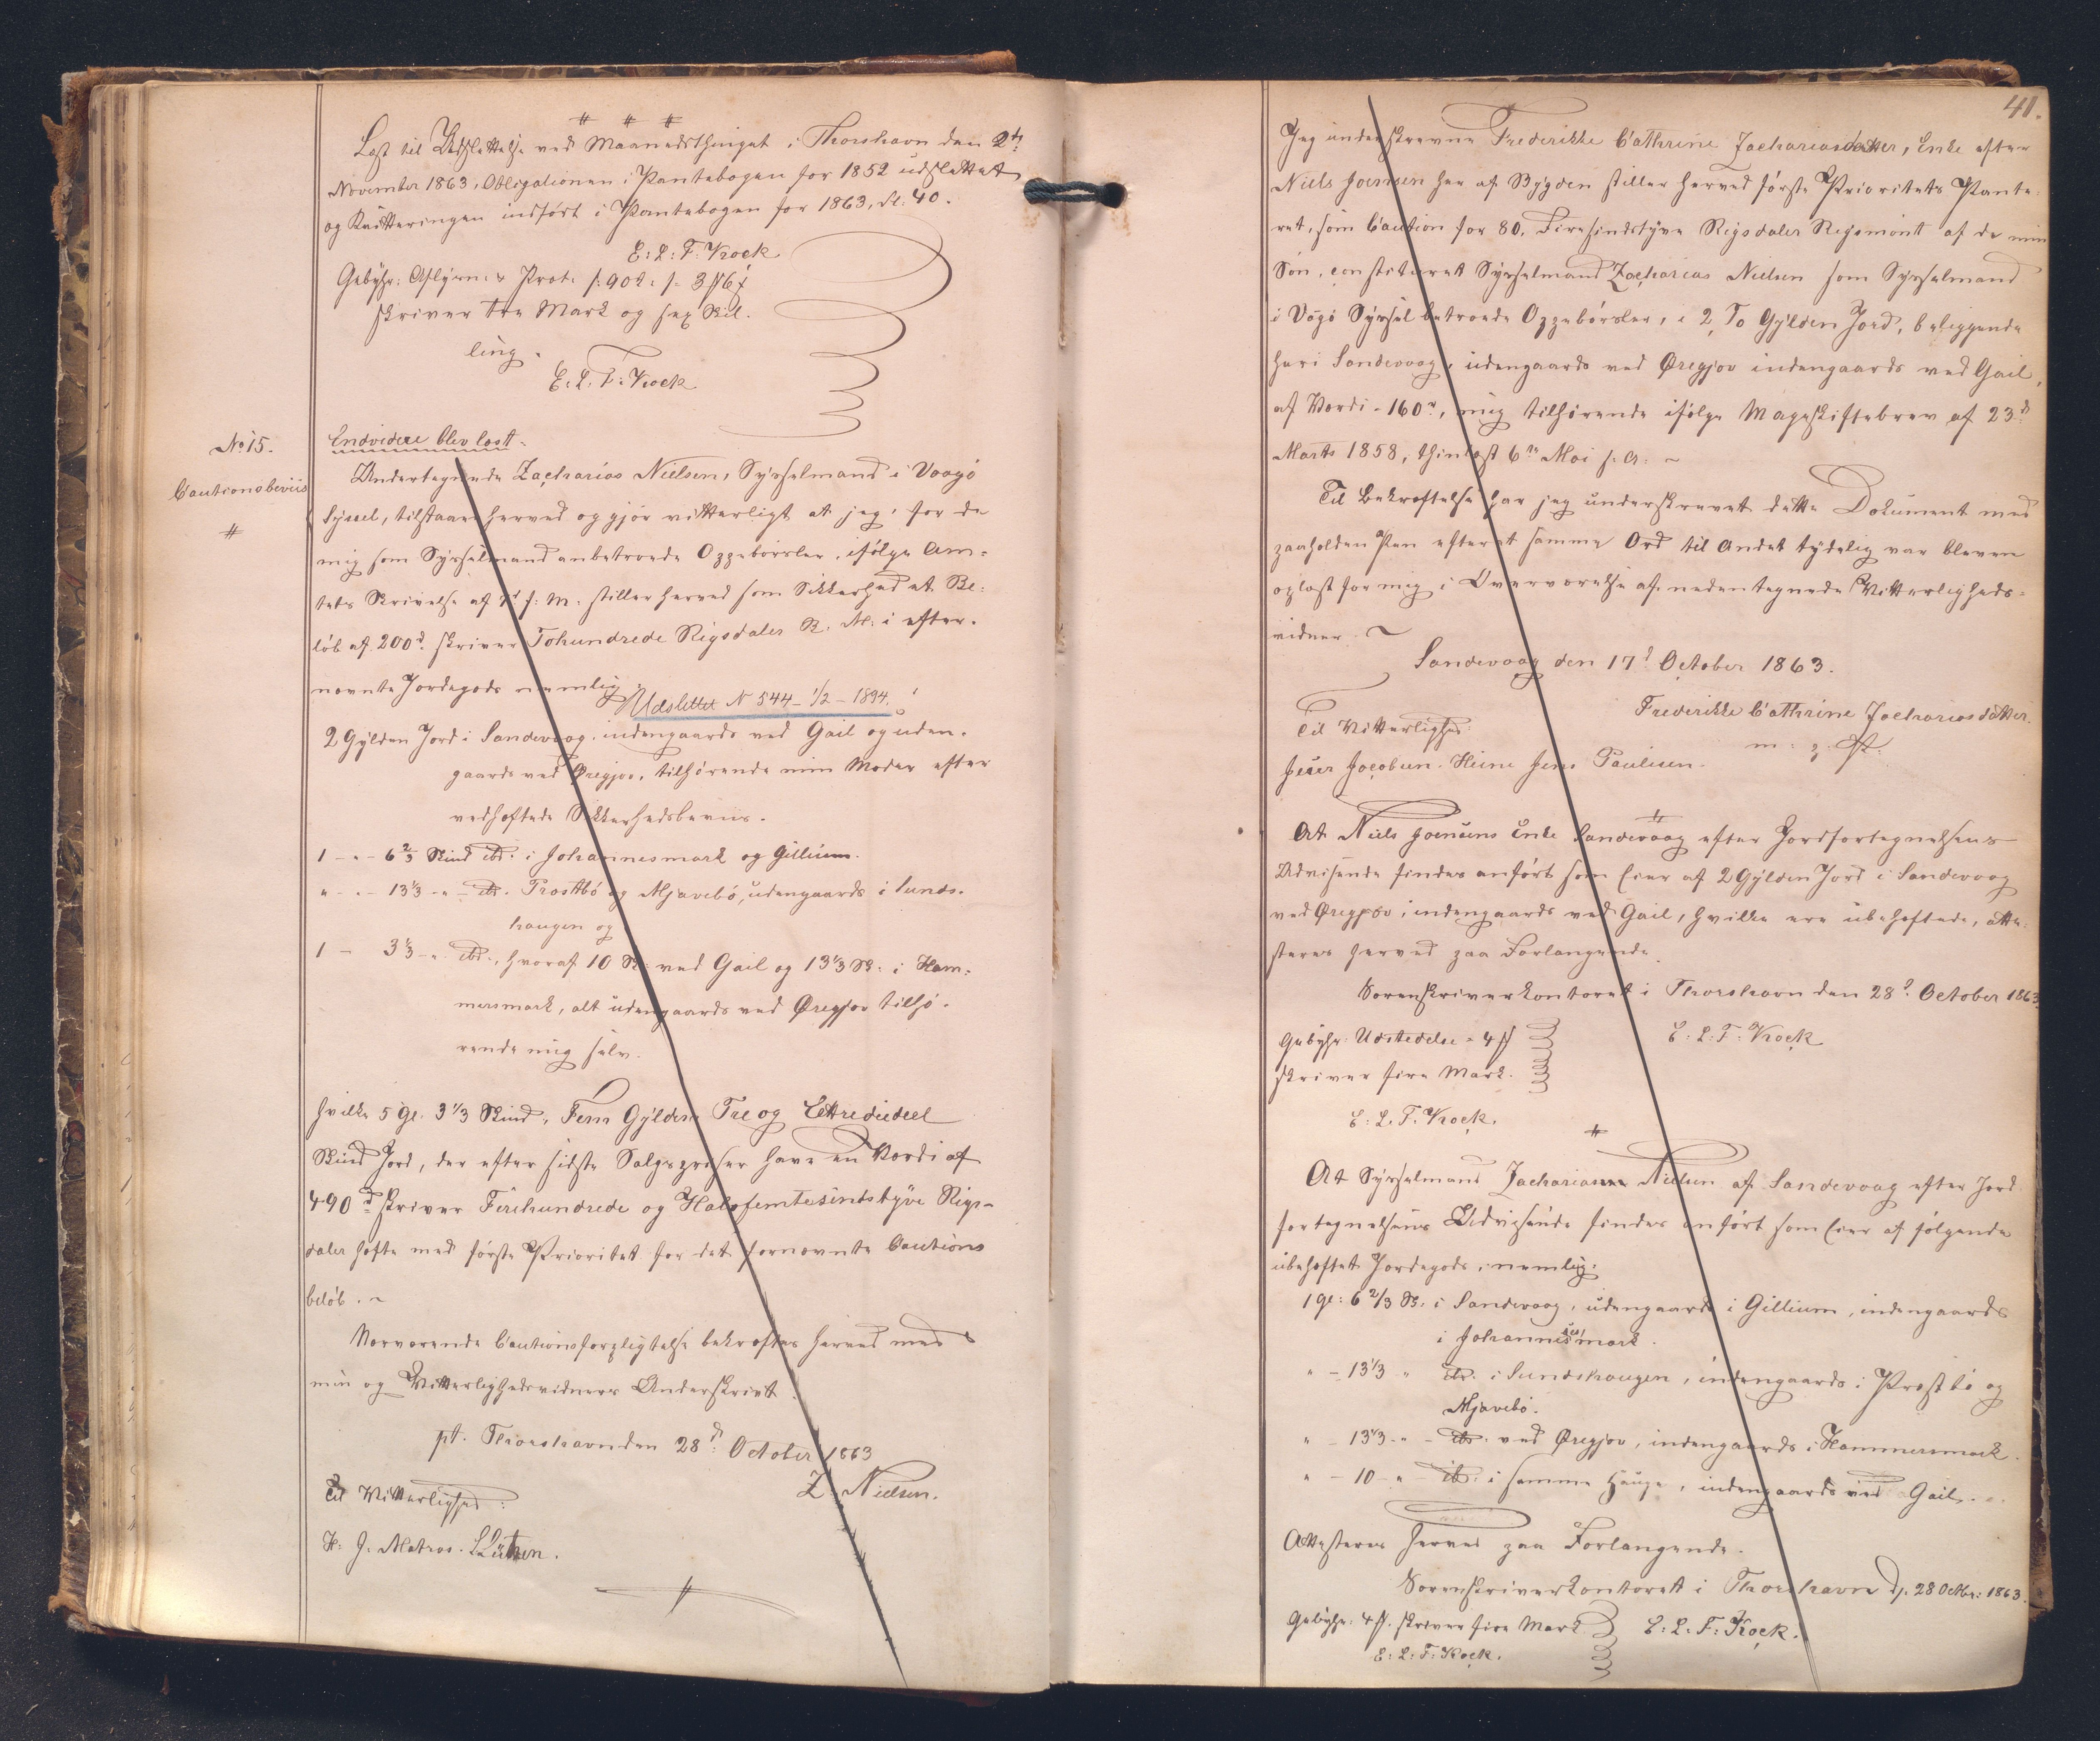 Læst til Udslettelse ved Maanedsthinget i Thorshavn den 2de
November 1863, Obligationen i Pantebogen for 1852 udslettet
og Kvitteringen indført i Pantebogen for 1863, fol: 40.
E: L: F: Kock
Gebyhr: Aflysn: & Prot:
skriver tre Mark og sex Skil-
ling.
E. L. F: Kock
No 15.
Cautionsbeviis
Endvidere blev læst:
Undertegnede Zacharias Nielsen, Sysselmand i Vaagø
Syssel, tilstaaer herved og gjør vitterligt at jeg, for de
mig som Sysselmand anbetroede Oppebørsler, ifølge Am-
tets Skrivelse af 7d f: M: stiller herved som Sikkerhed et Be-
løb af 200d skriver Tohundrede Rigsdaler R. M: i efter-
nævnte Jordegods nemlig:
Udslettet N 544 - 1/2 - 1894.
2 Gylden Jord i Sandevaag, indengaards ved Gail og uden-
gaards ved Øregjov, tilhørende min Moder efter
vedhæftede Sikkerhedsbeviis.
1 - " - 6 2/3 Skind ibd: i Johannesmark og Gillium.
" - " - 13 1/3 - " - ibd. Prostbø og Mjavebø, udengaards i Sunds-
haugen og
1 - 3 1/3 - " ibd:, hvoraf 10 Sk: ved Gail og 13 1/3 Sk: i Ham-
mersmark, alt udengaards ved Øregjov tilhø-
rende mig selv.
hvilke 5 Gl. 3 1/3 Skind, Fem Gylden Tre og Ettrediedeel
Skind Jord, der efter sidste Salgspriser have en Værdi af
490d skriver Firehundrede og Halvfemtesindstyve Rigs-
daler hæfte med første Prioritet for det fornævnte Cautions
beløb. ~
Nærværende Cautionsforpligtelse bekræftes herved med
min og Vitterlighedsvidners Underskrivt.
pt. Thorshavn den 28d October 1863
Z. Nielsen.
Til Vitterlighed:
H: J. Matras. Lützen.
41.
Jeg underskrevne Frederikke Cathrine Zachariasdatter, Enke efter
Niels Joensen her af Bygden stiller herved første Prioritets Pante-
ret, som Caution for 80, Firesindstyve Rigsdaler Rigsmønt af de min
Søn, constitueret Sysselmand Zacharias Nielsen som Sysselmand
i Vågø Syssel betroede Oppebørsler, i 2, To Gylden Jord, beliggende
her i Sandevaag, udengaards ved Øregjov indengaards ved Gail,
af Værdi - 160d, mig tilhørende ifølge Mageskiftebrev af 23d
Marts 1858, thinlæst 6te Mai s. A: ~
Til Bekræftelse har jeg underskrevet dette Dokument med
paaholden Pen efterat samme Ord til andet tydelig var bleven
oplæst for mig i Overværelse af nedentegnede Vitterligheds-
vidner. ~
Sandevaag den 17d October 1863.
Frederikke Cathrine Zachariasdatter.
m: p. P:
Til Vitterlighed:
Joen Jacobsen. Heine Jens Paulisen.
At Niels Joensens Enke Sandevaag efter Jordfortegnelsens
Udvisende findes anført som Eier af 2 Gylden Jord i Sandevaag
ved Øregjov, indengaards ved Gail, hvilke ere ubehæftede, atte-
steres herved paa Forlangende.
Sorenskriverkontoret i Thorshavn den 28d October 1863
E: L: F: Kock
Gebyhr: Udstedelse = 4 #
skriver fire Mark.
E: L. F. Kock.
At Sysselmand Zacharias Nielsen af Sandevaag efter Jord
fortegnelsens Udvisende findes anført som Eier af følgende
ubehæftet Jordegods, nemlig:
1 gl: 6 2/3 Sk: i Sandevaag, udengaards i Gillium, indengaards
i Johannesmark.
" - 13 1/3 " ibd: i Sundshaugen, indengaards i Prostbø og
Mjavebø.
" - 13 1/3 - " - ibd: ved Øregjov, indengaards i Hammersmark.
" - 10 - " - ib: i samme Hauge, indengaards ved Gail.
Attesteres herved paa Forlangende.
Sorenskriverkontoret i Thorshavn d. 28 Octbr: 1863.
Gebyhr: 4 #. skriver fire Mark E: L: F: Kock.
E: L: F: Kock.